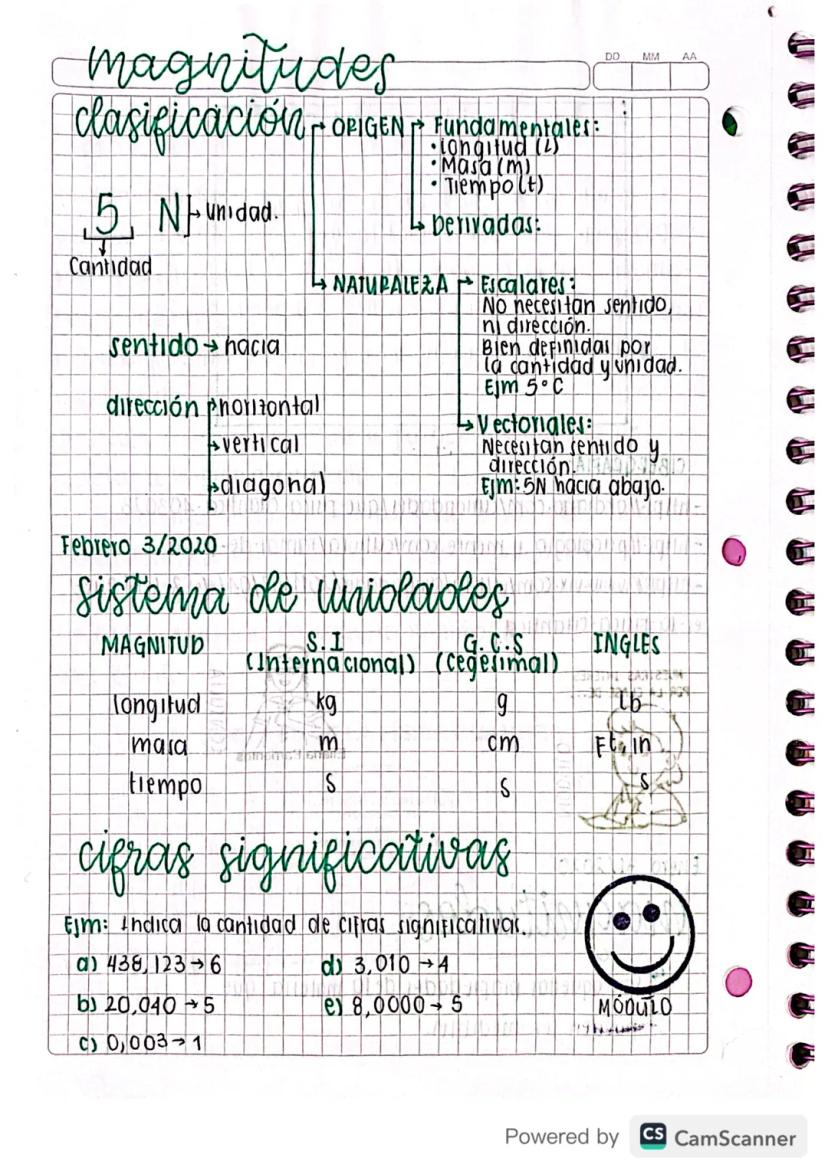 DD MM AA
magnitudes
clasificación
ORIGEN
Fundamentales:
• Longitud (L)
• Masa (m)
• Tiempo (t)
Derivadas:
5 N Unidad.
Cantidad
NATURALEZA
Escalares:
No necesitan sentido,
ni dirección.
Bien definidas por
la cantidad y unidad.
Ejm 5°C
sentido → hacia
dirección → horizontal
→ vertical
→ diagonal
Vectoriales:
Necesitan sentido y
dirección.
Ejm: 5N hacia abajo.
Febrero 3/2020
sistema de unidades
MAGNITUD S.I G.C.S INGLES
(Internacional) (Cegesimal)
longitud kg g lb
masa m cm Ft, in
tiempo s s s
cifras significativas
Ejm: Indica la cantidad de cifras significativas.
a) 438,123 → 6 d) 3,010 → 4
b) 20,040 → 5 e) 8,0000 → 5
c) 0,003 → 1
MÓDULO
Powered by CS CamScanner